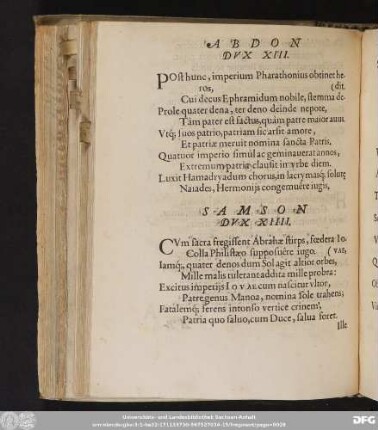 ABDON
DVX XIII.
POst hunc, imperium Pharathonius obtinet he
ros, (dit.
Cui decus Ephramidum nobile, stemma de-
Prole quater dena, ter deno deinde nepote,
Tàm pater est factus, quàm patre maior auus
Vtq́; suos patrio, patriam sic arsit amore,
Et patriæ meruit nomina sancta Patris.
Quatuor imperio simul ac geminauerat annes,
Extremum patriæ clausit in vrbe diem.
Luxit Hamadryadum chorus, in lacrymasq́; solutę
Naiades, Hermonijs congemuere iugis,
SAMSON
DVX XIIII.
CVm sacra fregissent Abrahæ stirps, fœdera Io-
Colla Philistæo supposuêre iugo. (VAE,
Iamq́;, quater denos dum Sol agit altior orbes,
Mille malis tulerant addita mille probra:
Excitus imperijs IOVAE cum nascitur vltor,
Patre genus Manoa, nomina sole trahens;
Fatalemq́; ferens intonso vertice crinem,
Patria quo saluo, cum Duce, salua foret.
Ille
Universitäts- und Landesbibliothek Sachsen-Anhalt
DFG